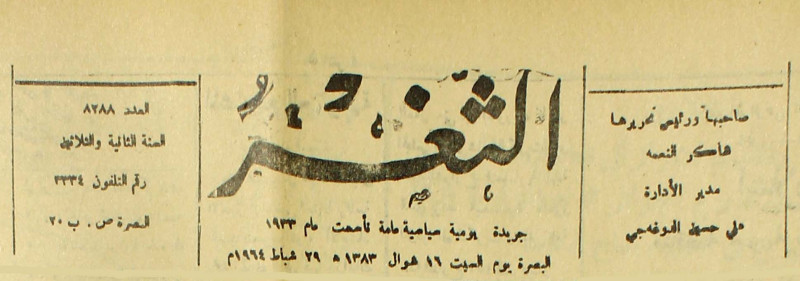 صاحبها ورئيس تحريرها
شاكر النعمه
مدير الأدارة
علي حسين
الثغر
جريدة يومية سياسية عامة تأسست عام ١٩٣٣
البصرة يوم السبت ١٦ شوال ١٣٨٣ ه ٢٩ شباط ١٩٦٤م
العدد ٨٢٨٨
السنة الثانية والثلاثين
رقم التلفون ٣٣٣٤
البصرة ص . ب ٢٠